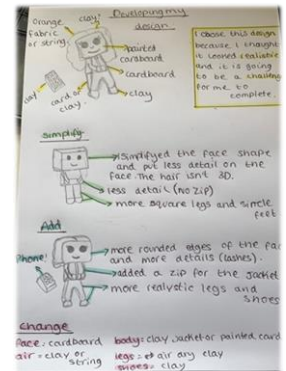 Developing my
design
Orange
fabric
or string
clay?
painted
cardboard
cardboard
clay
card or
clay.
clay
I choose this design
because I thought
it looked realistic
and it is going
to be a challenge
for me to
complete.
Simplify
simplifyed the face shape
and put less detail on the
face. The hair isnt 3D.
less detail (no zip)
more square legs and simple
feet
Add
Phone!
more rounded edges of the face
and more details (lashes).
added a zip for the jacket
more realystic legs and
shoes
change
face: cardboard
body: clay, jacket or painted card
air = clay or
string
legs = air any clay
shoes = clay